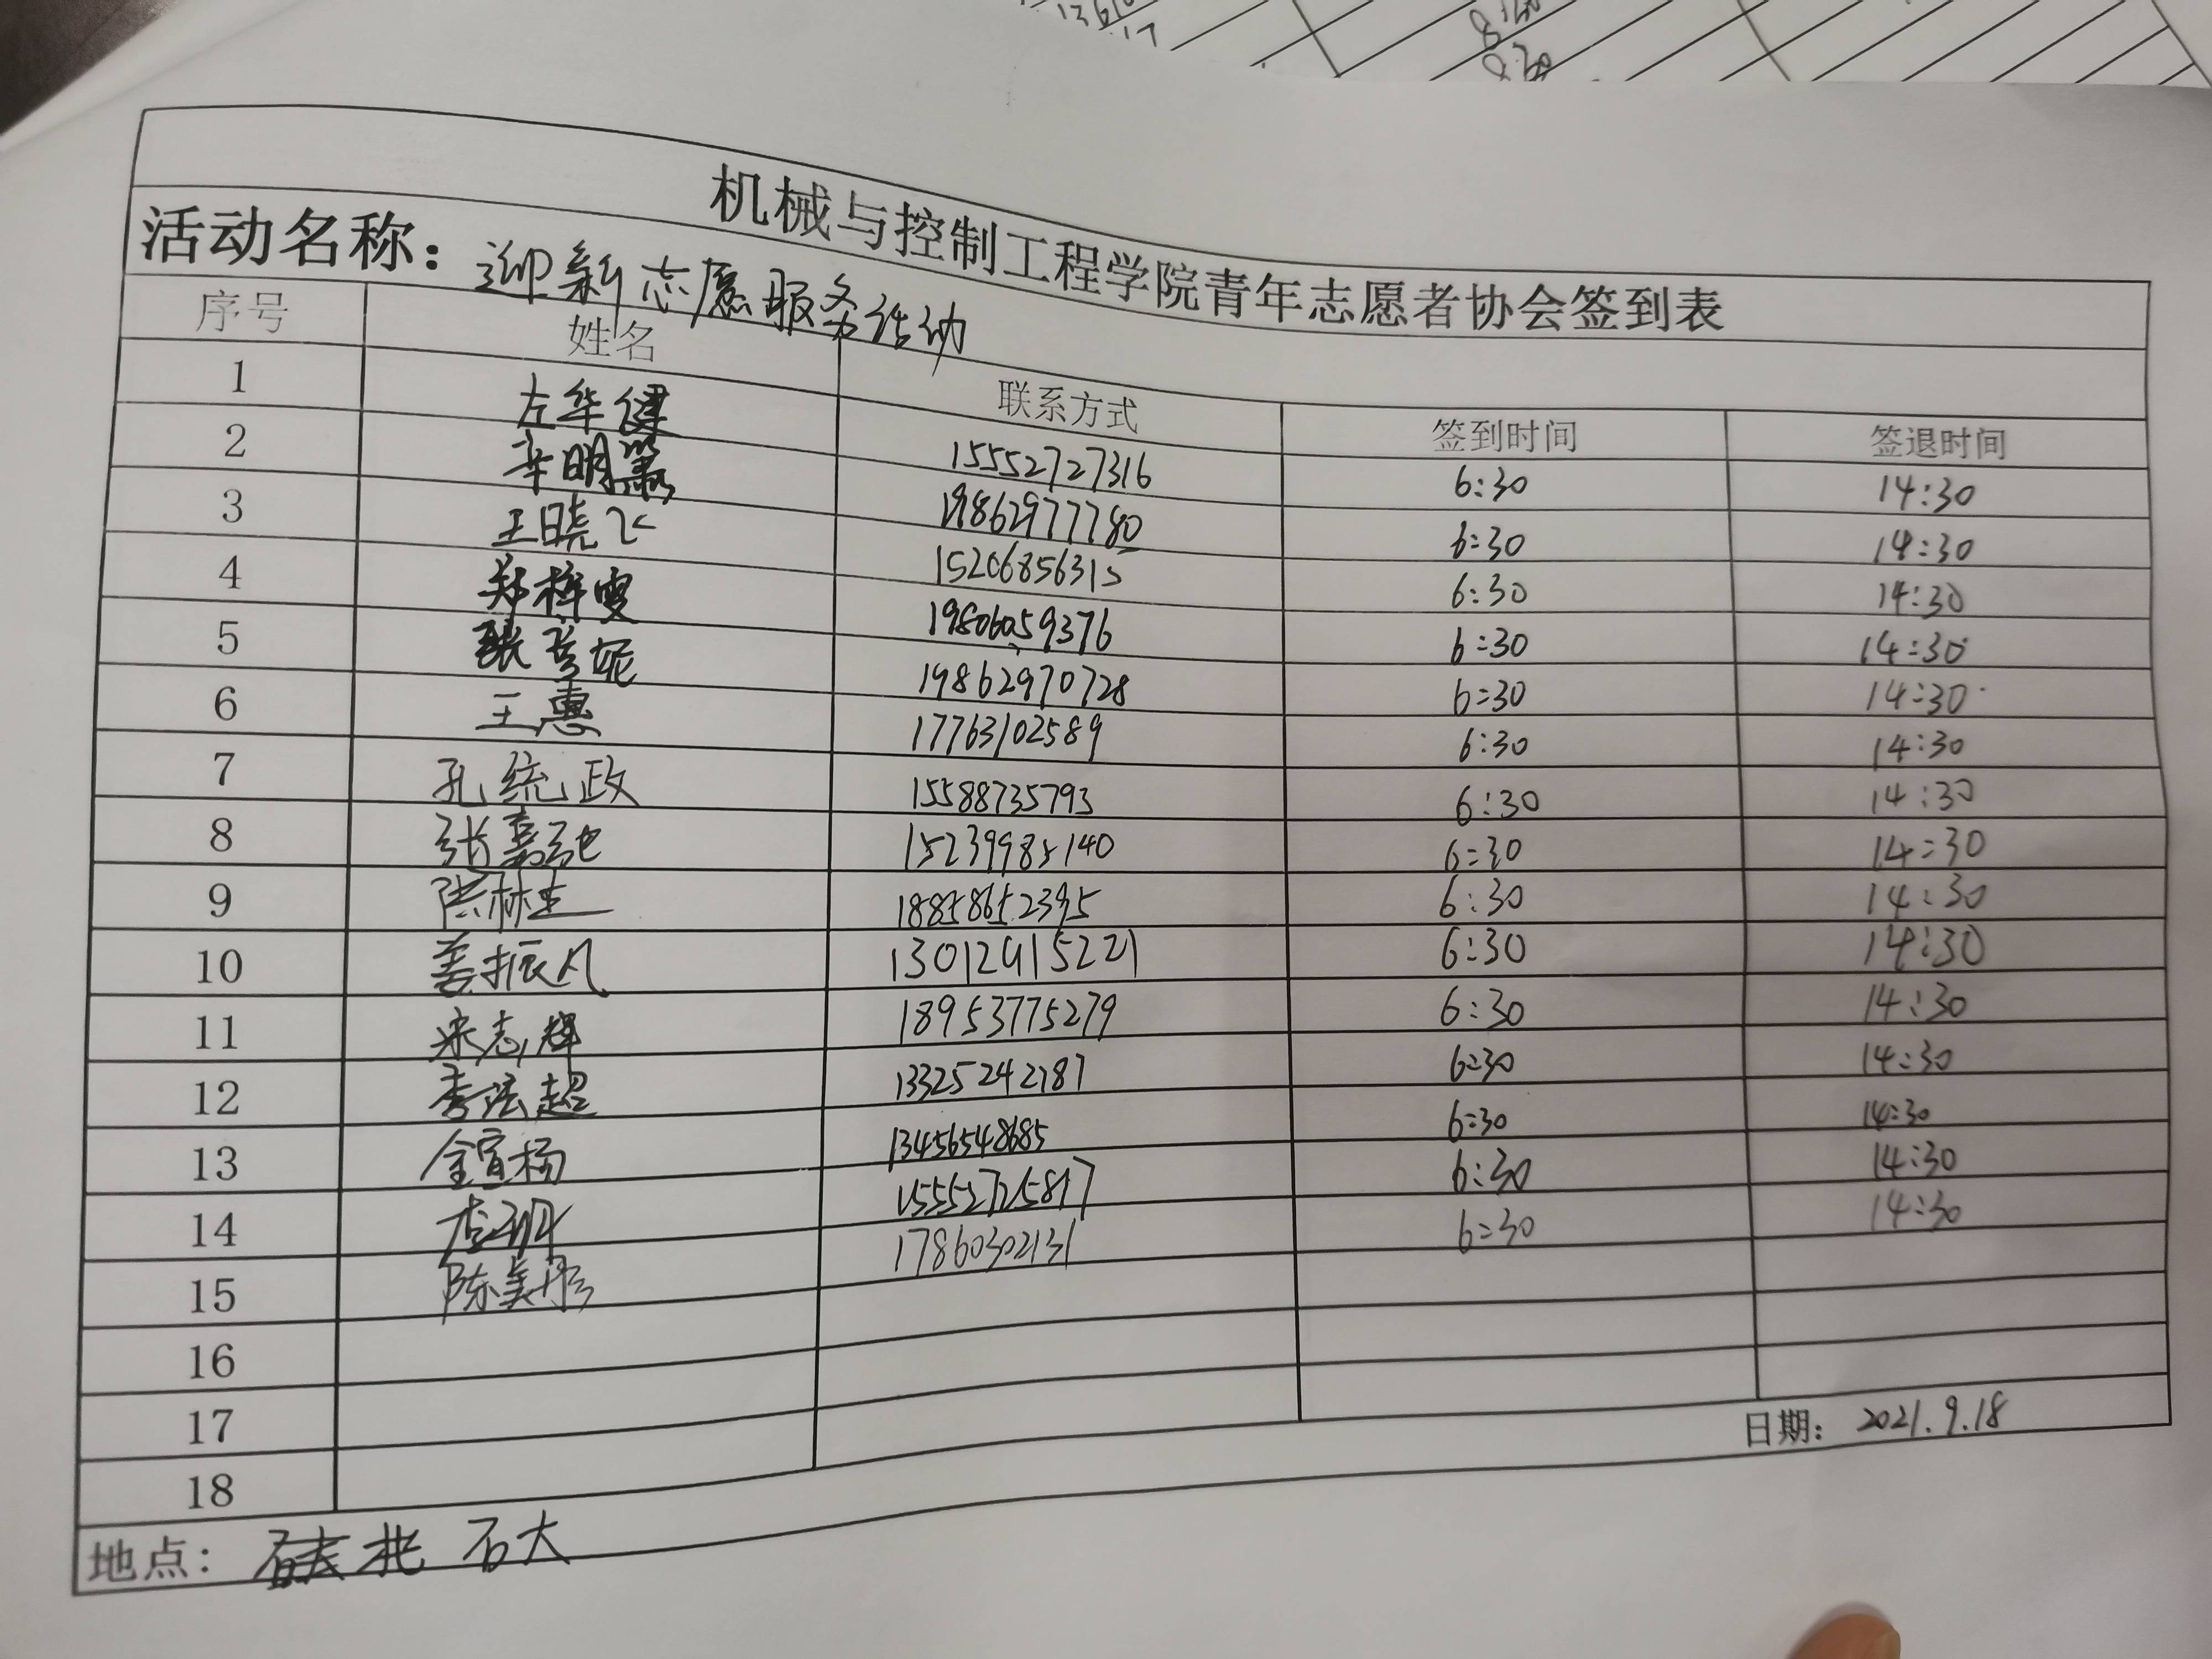 机械与控制工程学院青年志愿者协会签到表
活动名称：迎新志愿服务活动
序号 姓名 联系方式 签到时间 签退时间
1 左华健 15552727316 6:30 14:30
2 辛明 19862977780 6:30 14:30
3 王晓飞 15206856315 6:30 14:30
4 郑梓雯 19806059376 6:30 14:30
5 张彦妮 19862970728 6:30 14:30
6 王惠 17763102589 6:30 14:30
7 孔统政 15588735793 6:30 14:30
8 张嘉弛 15239985140 6:30 14:30
9 陈林生 18858652395 6:30 14:30
10 姜振凡 13012915221 6:30 14:30
11 宋志辉 18953775279 6:30 14:30
12 李法超 13325242787 6:30 14:30
13 金宣杨 13456548685 6:30 14:30
14 15552725817 6:30 14:30
15 陈美彤 17860302131 6:30 14:30
16
17
18
日期：2021.9.18
地点：北 石大